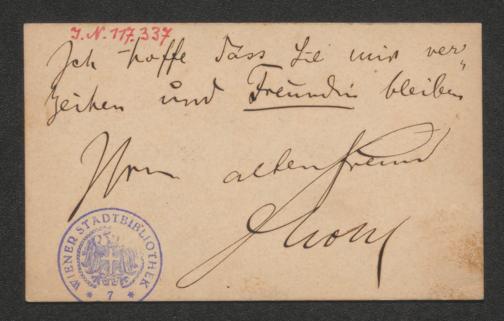 I.N. 117.337
Ich hoffe dass Sie mir ver„
zeihen und Freundin bleiben
Ihrem alten Freund
WIENER STADTBIBLIOTHEK
* 7 *